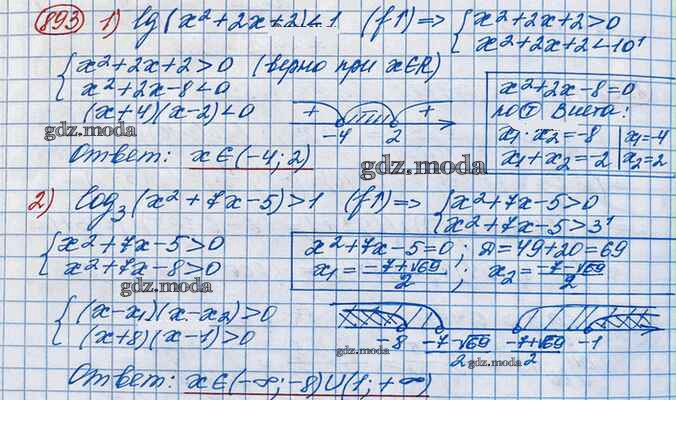 893 1) lg(x²+2x+2)<1 (f↑) => { x²+2x+2>0
x²+2x+2<10¹
{ x²+2x+2>0 (верно при x∈R)
x²+2x-8<0
(x+4)(x-2)<0
+ - +
-4 2
x²+2x-8=0
по Т Виета:
x₁·x₂=-8 | x₁=-4
x₁+x₂=-2 | x₂=2
gdz.moda
Ответ: x∈(-4; 2)
gdz.moda
2) log₃(x²+7x-5)>1 (f↑) => { x²+7x-5>0
x²+7x-5>3¹
{ x²+7x-5>0
x²+7x-8>0
x²+7x-5=0; D=49+20=69
x₁=(-7+√69)/2; x₂=(-7-√69)/2
gdz.moda
{ (x-x₁)(x-x₂)>0
(x+8)(x-1)>0
-8 (-7-√69)/2 (-7+√69)/2 -1
gdz.moda
gdz.moda
Ответ: x∈(-∞; -8)∪(1; +∞)